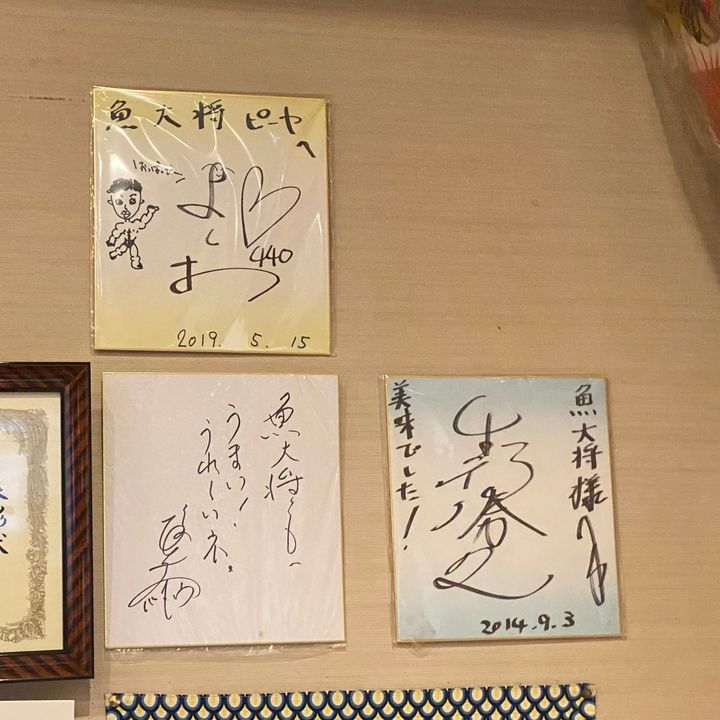 魚大将ピーヤへ
おっぱっぴー
よしお
440
2019. 5. 15
魚大将さん
うまい!、
うれしいネ。
魚大将様へ
美味でした!
2014.9.3